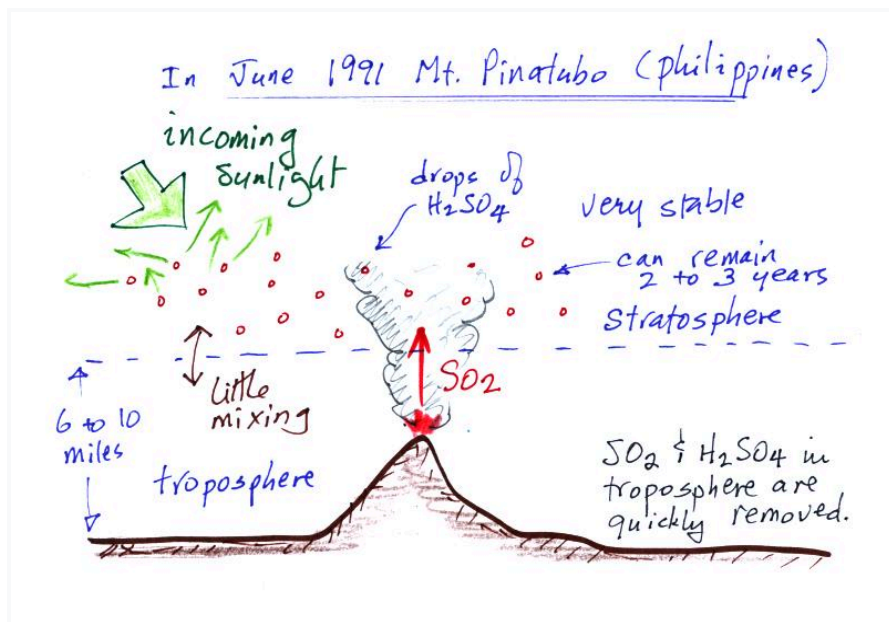 In June 1991 Mt. Pinatubo (philippines)
incoming
sunlight
drops of
H2SO4
very stable
can remain
2 to 3 years
stratosphere
little
mixing
SO2
6 to 10
miles
troposphere
SO2 & H2SO4 in
troposphere are
quickly removed.